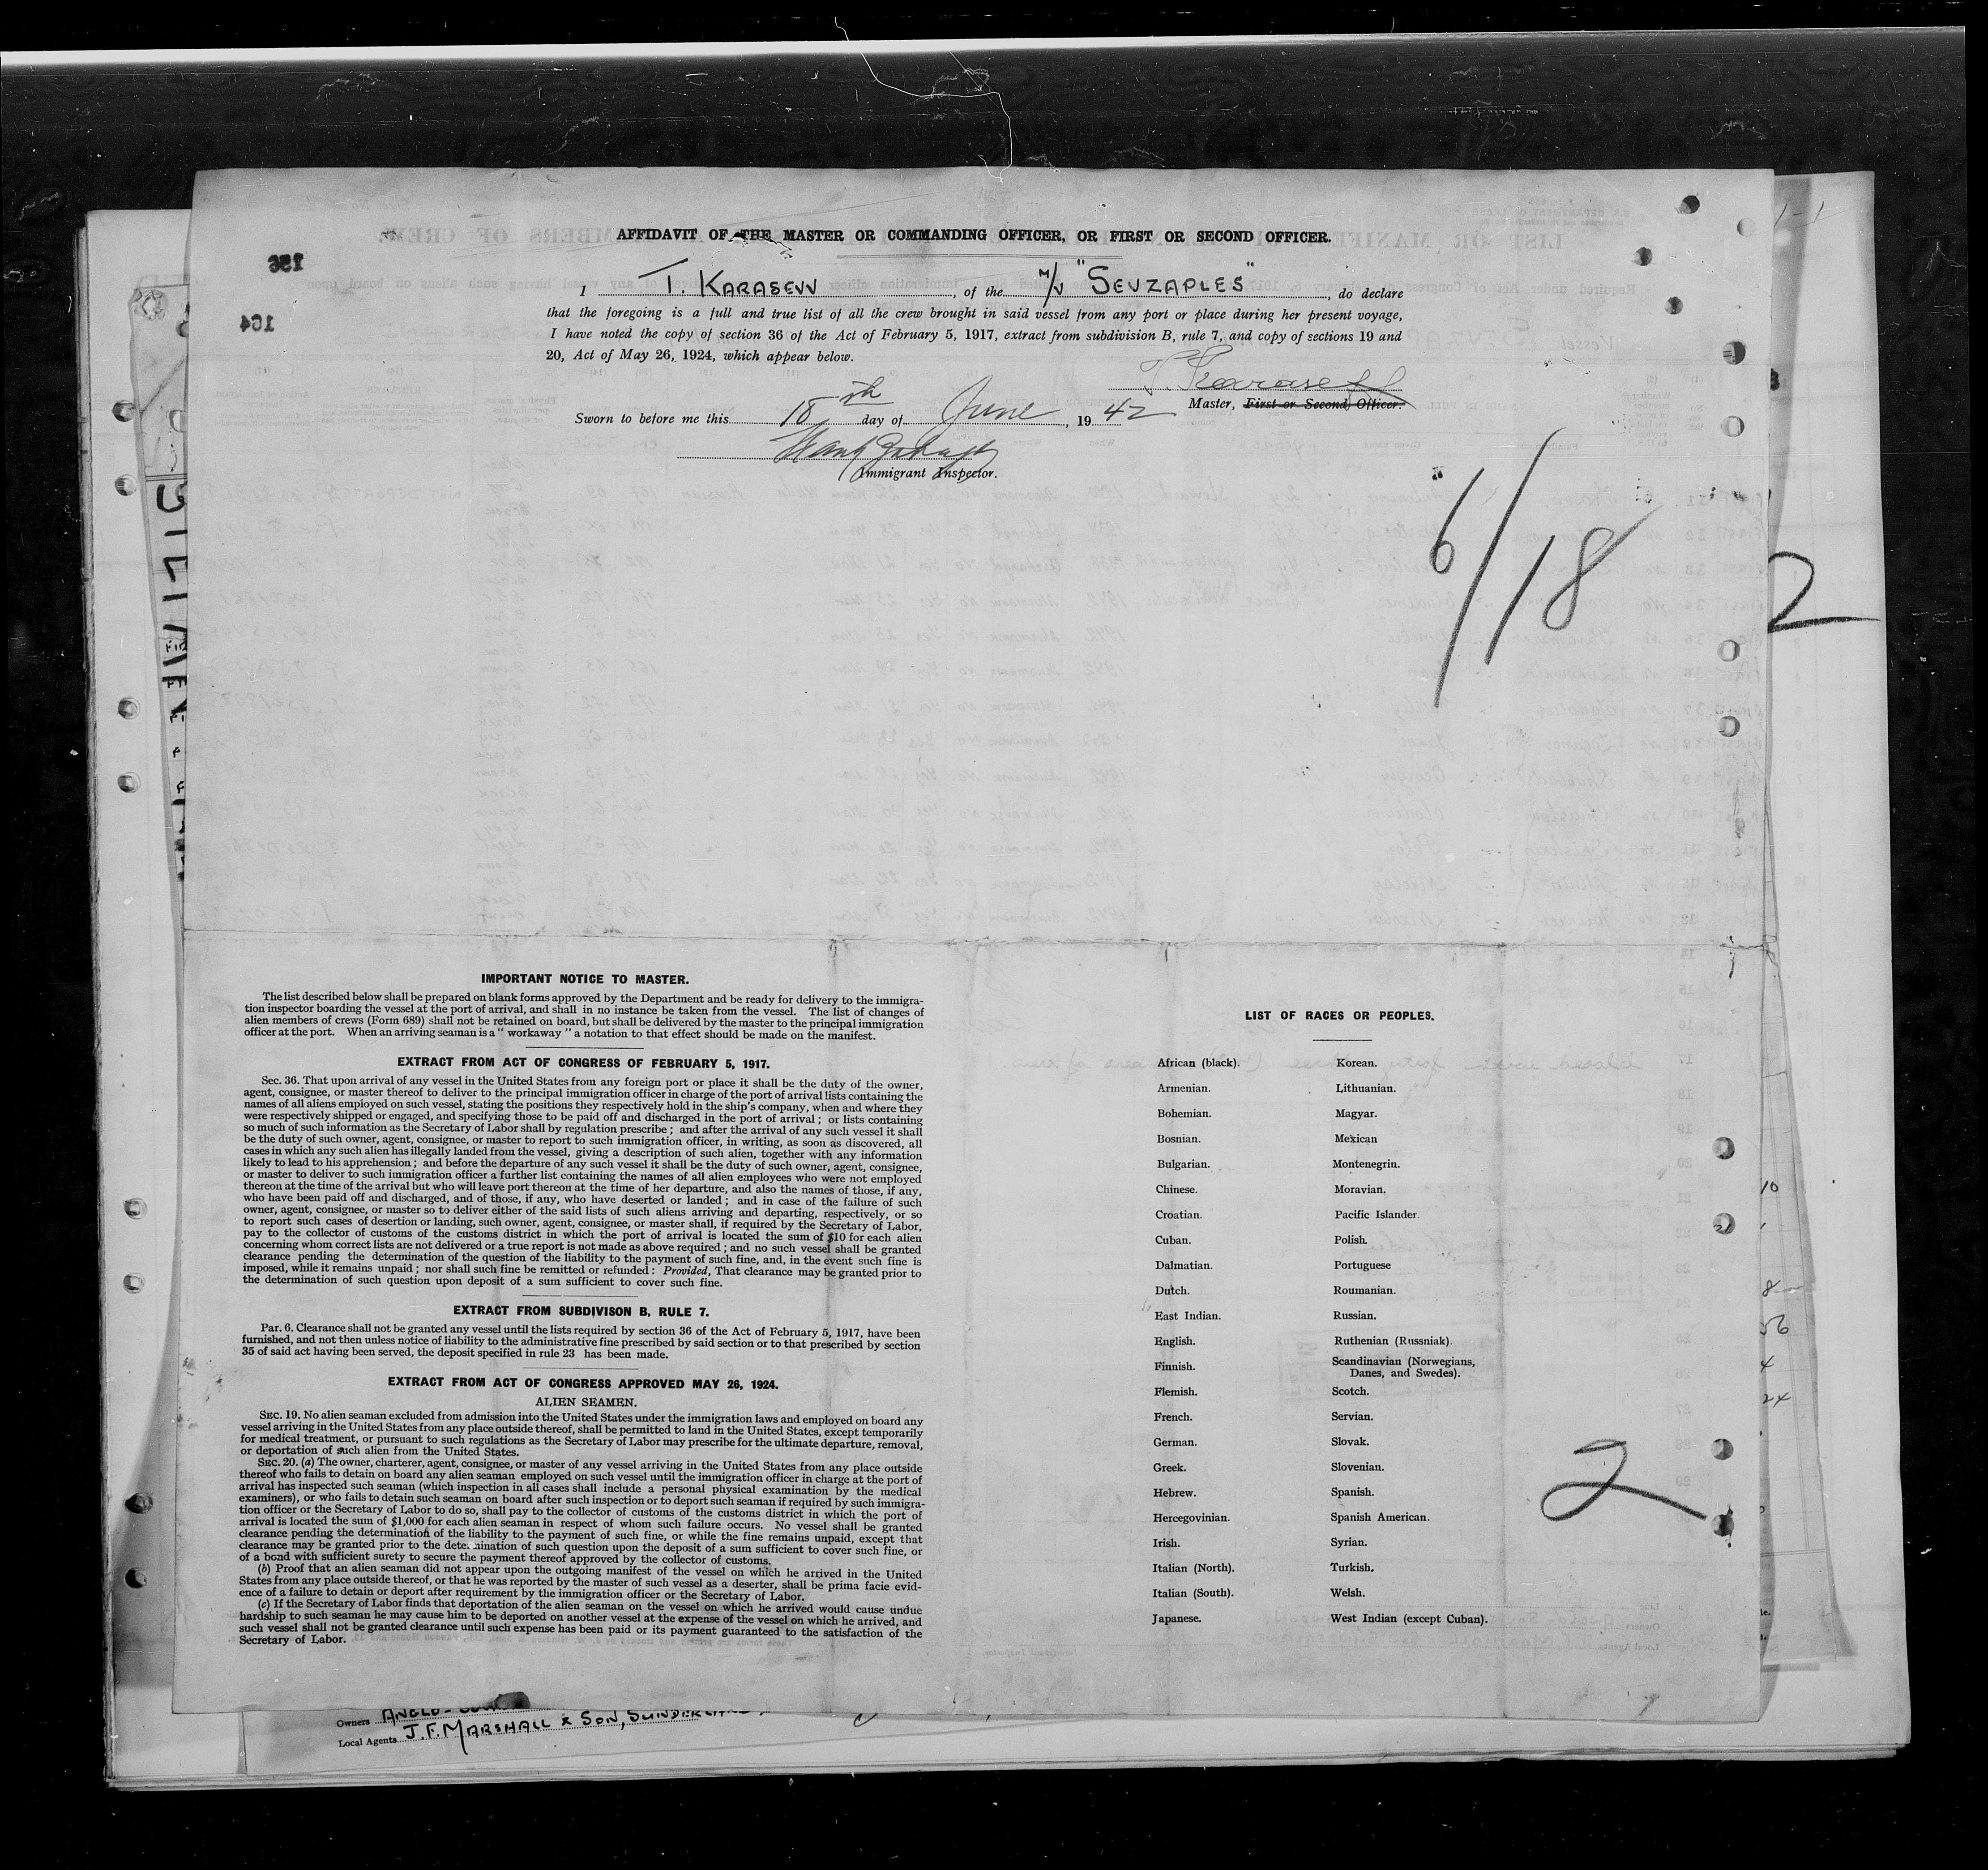 AFFIDAVIT OF THE MASTER OR COMMANDING OFFICER, OR FIRST OR SECOND OFFICER.
186
164
I T. KARASEVV, of the M/V "SEVZAPLES", do declare
that the foregoing is a full and true list of all the crew brought in said vessel from any port or place during her present voyage,
I have noted the copy of section 36 of the Act of February 5, 1917, extract from subdivision B, rule 7, and copy of sections 19 and
20, Act of May 26, 1924, which appear below.
Master, First or Second, Officer.
Sworn to before me this 18 th day of June, 1942
Immigrant Inspector.
6/18
2
IMPORTANT NOTICE TO MASTER.
The list described below shall be prepared on blank forms approved by the Department and be ready for delivery to the immigra-
tion inspector boarding the vessel at the port of arrival, and shall in no instance be taken from the vessel. The list of changes of
alien members of crews (Form 689) shall not be retained on board, but shall be delivered by the master to the principal immigration
officer at the port. When an arriving seaman is a " workaway " a notation to that effect should be made on the manifest.
EXTRACT FROM ACT OF CONGRESS OF FEBRUARY 5, 1917.
Sec. 36. That upon arrival of any vessel in the United States from any foreign port or place it shall be the duty of the owner,
agent, consignee, or master thereof to deliver to the principal immigration officer in charge of the port of arrival lists containing the
names of all aliens employed on such vessel, stating the positions they respectively hold in the ship's company, when and where they
were respectively shipped or engaged, and specifying those to be paid off and discharged in the port of arrival ; or lists containing
so much of such information as the Secretary of Labor shall by regulation prescribe ; and after the arrival of any such vessel it shall
be the duty of such owner, agent, consignee, or master to report to such immigration officer, in writing, as soon as discovered, all
cases in which any such alien has illegally landed from the vessel, giving a description of such alien, together with any information
likely to lead to his apprehension ; and before the departure of any such vessel it shall be the duty of such owner, agent, consignee,
or master to deliver to such immigration officer a further list containing the names of all alien employees who were not employed
thereon at the time of the arrival but who will leave port thereon at the time of her departure, and also the names of those, if any,
who have been paid off and discharged, and of those, if any, who have deserted or landed ; and in case of the failure of such
owner, agent, consignee, or master so to deliver either of the said lists of such aliens arriving and departing, respectively, or so
to report such cases of desertion or landing, such owner, agent, consignee, or master shall, if required by the Secretary of Labor,
pay to the collector of customs of the customs district in which the port of arrival is located the sum of $10 for each alien
concerning whom correct lists are not delivered or a true report is not made as above required ; and no such vessel shall be granted
clearance pending the determination of the question of the liability to the payment of such fine, and, in the event such fine is
imposed, while it remains unpaid ; nor shall such fine be remitted or refunded : Provided, That clearance may be granted prior to
the determination of such question upon deposit of a sum sufficient to cover such fine.
EXTRACT FROM SUBDIVISON B, RULE 7.
Par. 6. Clearance shall not be granted any vessel until the lists required by section 36 of the Act of February 5, 1917, have been
furnished, and not then unless notice of liability to the administrative fine prescribed by said section or to that prescribed by section
35 of said act having been served, the deposit specified in rule 23 has been made.
EXTRACT FROM ACT OF CONGRESS APPROVED MAY 26, 1924.
ALIEN SEAMEN.
SEC. 19. No alien seaman excluded from admission into the United States under the immigration laws and employed on board any
vessel arriving in the United States from any place outside thereof, shall be permitted to land in the United States, except temporarily
for medical treatment, or pursuant to such regulations as the Secretary of Labor may prescribe for the ultimate departure, removal,
or deportation of such alien from the United States.
SEC. 20. (a) The owner, charterer, agent, consignee, or master of any vessel arriving in the United States from any place outside
thereof who fails to detain on board any alien seaman employed on such vessel until the immigration officer in charge at the port of
arrival has inspected such seaman (which inspection in all cases shall include a personal physical examination by the medical
examiners), or who fails to detain such seaman on board after such inspection or to deport such seaman if required by such immigra-
tion officer or the Secretary of Labor to do so, shall pay to the collector of customs of the customs district in which the port of
arrival is located the sum of $1,000 for each alien seaman in respect of whom such failure occurs. No vessel shall be granted
clearance pending the determination of the liability to the payment of such fine, or while the fine remains unpaid, except that
clearance may be granted prior to the determination of such question upon the deposit of a sum sufficient to cover such fine, or
of a bond with sufficient surety to secure the payment thereof approved by the collector of customs.
(b) Proof that an alien seaman did not appear upon the outgoing manifest of the vessel on which he arrived in the United
States from any place outside thereof, or that he was reported by the master of such vessel as a deserter, shall be prima facie evid-
ence of a failure to detain or deport after requirement by the immigration officer or the Secretary of Labor.
(c) If the Secretary of Labor finds that deportation of the alien seaman on the vessel on which he arrived would cause undue
hardship to such seaman he may cause him to be deported on another vessel at the expense of the vessel on which he arrived, and
such vessel shall not be granted clearance until such expense has been paid or its payment guaranteed to the satisfaction of the
Secretary of Labor.
LIST OF RACES OR PEOPLES.
African (black). Korean.
Armenian. Lithuanian.
Bohemian. Magyar.
Bosnian. Mexican
Bulgarian. Montenegrin.
Chinese. Moravian.
Croatian. Pacific Islander.
Cuban. Polish.
Dalmatian. Portuguese
Dutch. Roumanian.
East Indian. Russian.
English. Ruthenian (Russniak).
Finnish. Scandinavian (Norwegians,
Danes, and Swedes).
Flemish. Scotch.
French. Servian.
German. Slovak.
Greek. Slovenian.
Hebrew. Spanish.
Hercegovinian. Spanish American.
Irish. Syrian.
Italian (North). Turkish.
Italian (South). Welsh.
Japanese. West Indian (except Cuban).
2
10
8
56
4
24
Owners ANGLO-
Local Agents J. F. MARSHALL & SON, SUNDERLAND